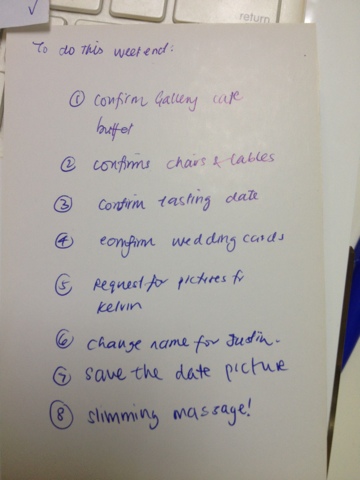 return
To do this weekend:
① confirm Gallery cafe
buffet
② confirms chairs & tables
③ confirm tasting date
④ confirm wedding cards
⑤ Request for pictures fr
Kelvin
⑥ change name for Justin.
⑦ save the date picture
⑧ slimming massage!